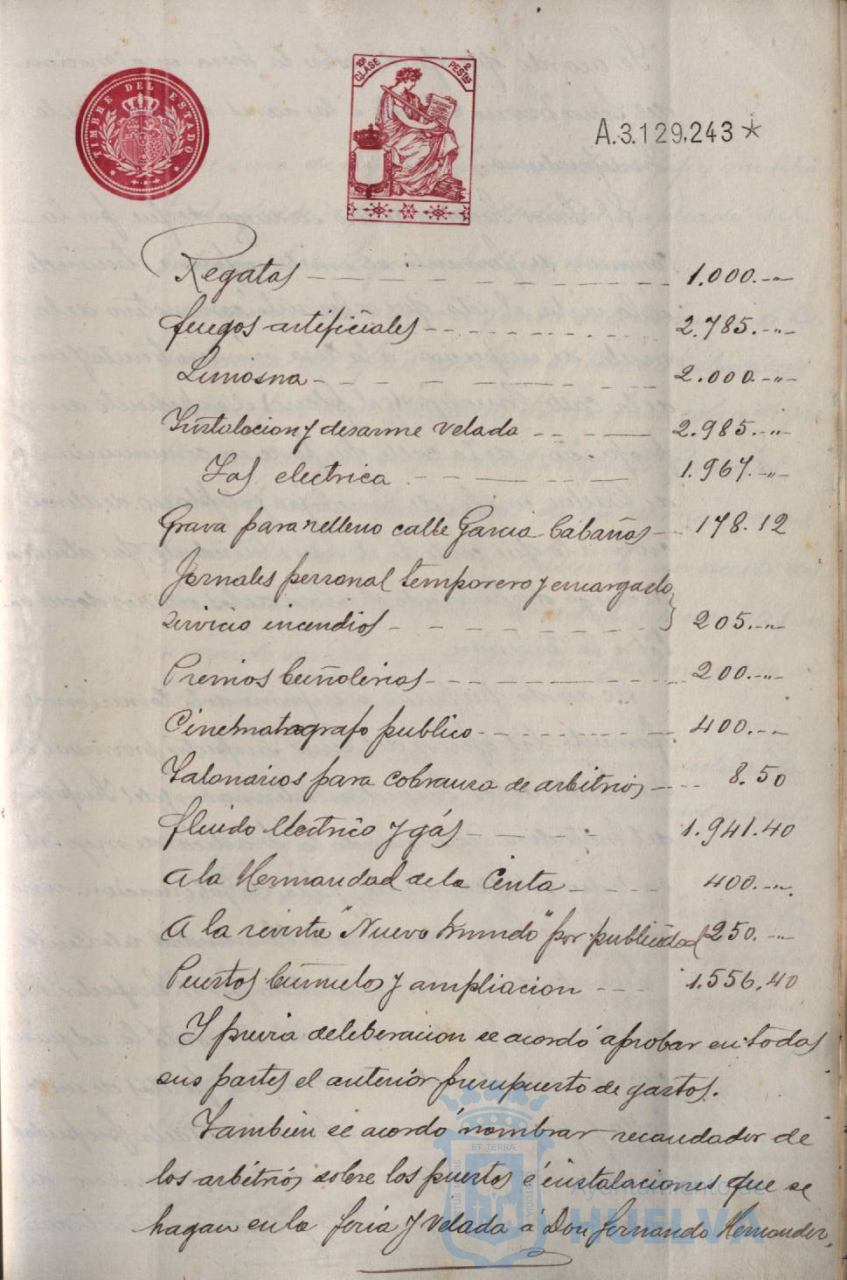 TIMBRE DEL ESTADO
10ª CLASE 2 PESTAS
A.3.129,243*
Regatas - - - - - - 1.000.-"-
fuegos artificiales - - - - - - 2.785.-"-
Limosna - - - - - - 2.000-"-
Instalacion y desarme velada - - - 2.985.-"-
Las electrica - - - - - 1.967.-"-
Grava para relleno calle Garcia Cabañas - - 178.12
Jornales personal temporero y encargado
servicio incendios - - - - - } 205.-"-
Premios buñolerias - - - - - - 200.-"-
Cinematografo publico - - - - - 400.-"-
Talonarios para cobranza de arbitrios - - - 8.50
fluido electrico y gás - - - - 1.941.40
A la Hermandad de la Cinta - - - 400.-"-
A la revista "Nuevo Mundo" por publicidad 250.-"-
Puestos buñuelos y ampliacion - - - 1.556.40
Y previa deliberacion se acordó aprobar en todas
sus partes el anterior presupuesto de gastos.
Tambien se acordó nombrar recaudador de
los arbitrios sobre los puestos é instalaciones que se
hagan en la feria y Velada á Don Fernando Hernandez,
ET TERRÆ
Ayuntamiento de
HUELVA